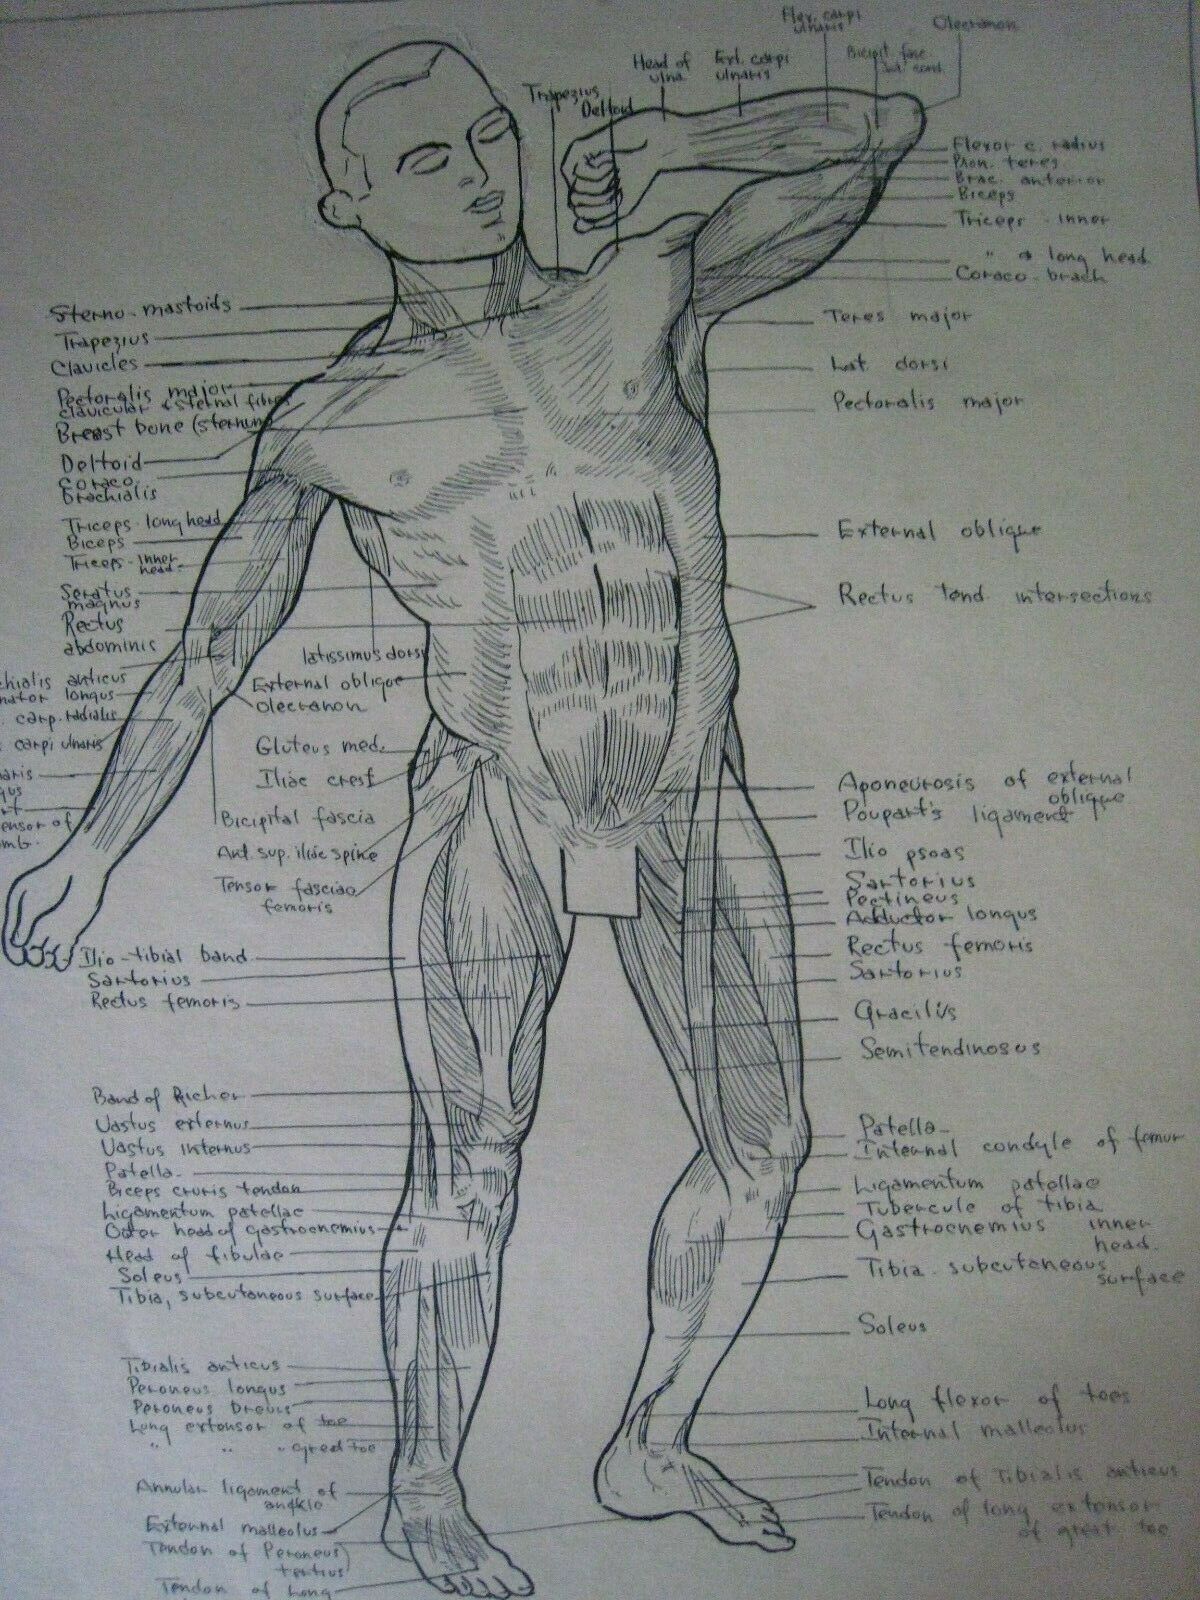 Flex. carpi
ulnaris
Olecranon
Head of
ulna
Ext. carpi
ulnaris
Bicipit. fasc.
Trapezius
Deltoid
Flexor c. radius
Pron. teres
Brac. anterior
Biceps
Triceps inner
" " long head
Coraco-brach
Teres major
Lat. dorsi
Pectoralis major
External oblique
Rectus tend. intersections
Aponeurosis of external
oblique
Poupart's ligament
Ilio psoas
Sartorius
Pectineus
Adductor longus
Rectus femoris
Sartorius
Gracilis
Semitendinosus
Patella
Internal condyle of femur
Ligamentum patellae
Tubercule of tibia
Gastrocnemius inner
head.
Tibia subcutaneous
surface
Soleus
Long flexor of toes
Internal malleolus
Tendon of Tibialis anticus
Tendon of long extensor
of great toe
Sterno-mastoids
Trapezius
Clavicles
Pectoralis major
clavicular & sternal fibres
Breast bone (sternum)
Deltoid
Coraco
brachialis
Triceps-long head
Biceps
Triceps-inner
head.
Seratus
magnus
Rectus
abdominis
latissimus dorsi
External oblique
Olecranon
chialis anticus
nator longus
carp. radialis
carpi ulnaris
naris
gus
ensor of
mb.
Gluteus med.
Iliac crest
Bicipital fascia
Ant. sup. iliac spine
Tensor fasciae
femoris
Ilio-tibial band
Sartorius
Rectus femoris
Band of Richer
Vastus externus
Vastus internus
Patella
Biceps cruris tendon
Ligamentum patellae
Outer head of gastrocnemius
Head of fibulae
Soleus
Tibia, subcutaneous surface
Tibialis anticus
Peroneus longus
Peroneus brevis
Long extensor of toe
" " " great toe
Annular ligament of
angkle
External malleolus
Tendon of Peroneus
tertius
Tendon of Long